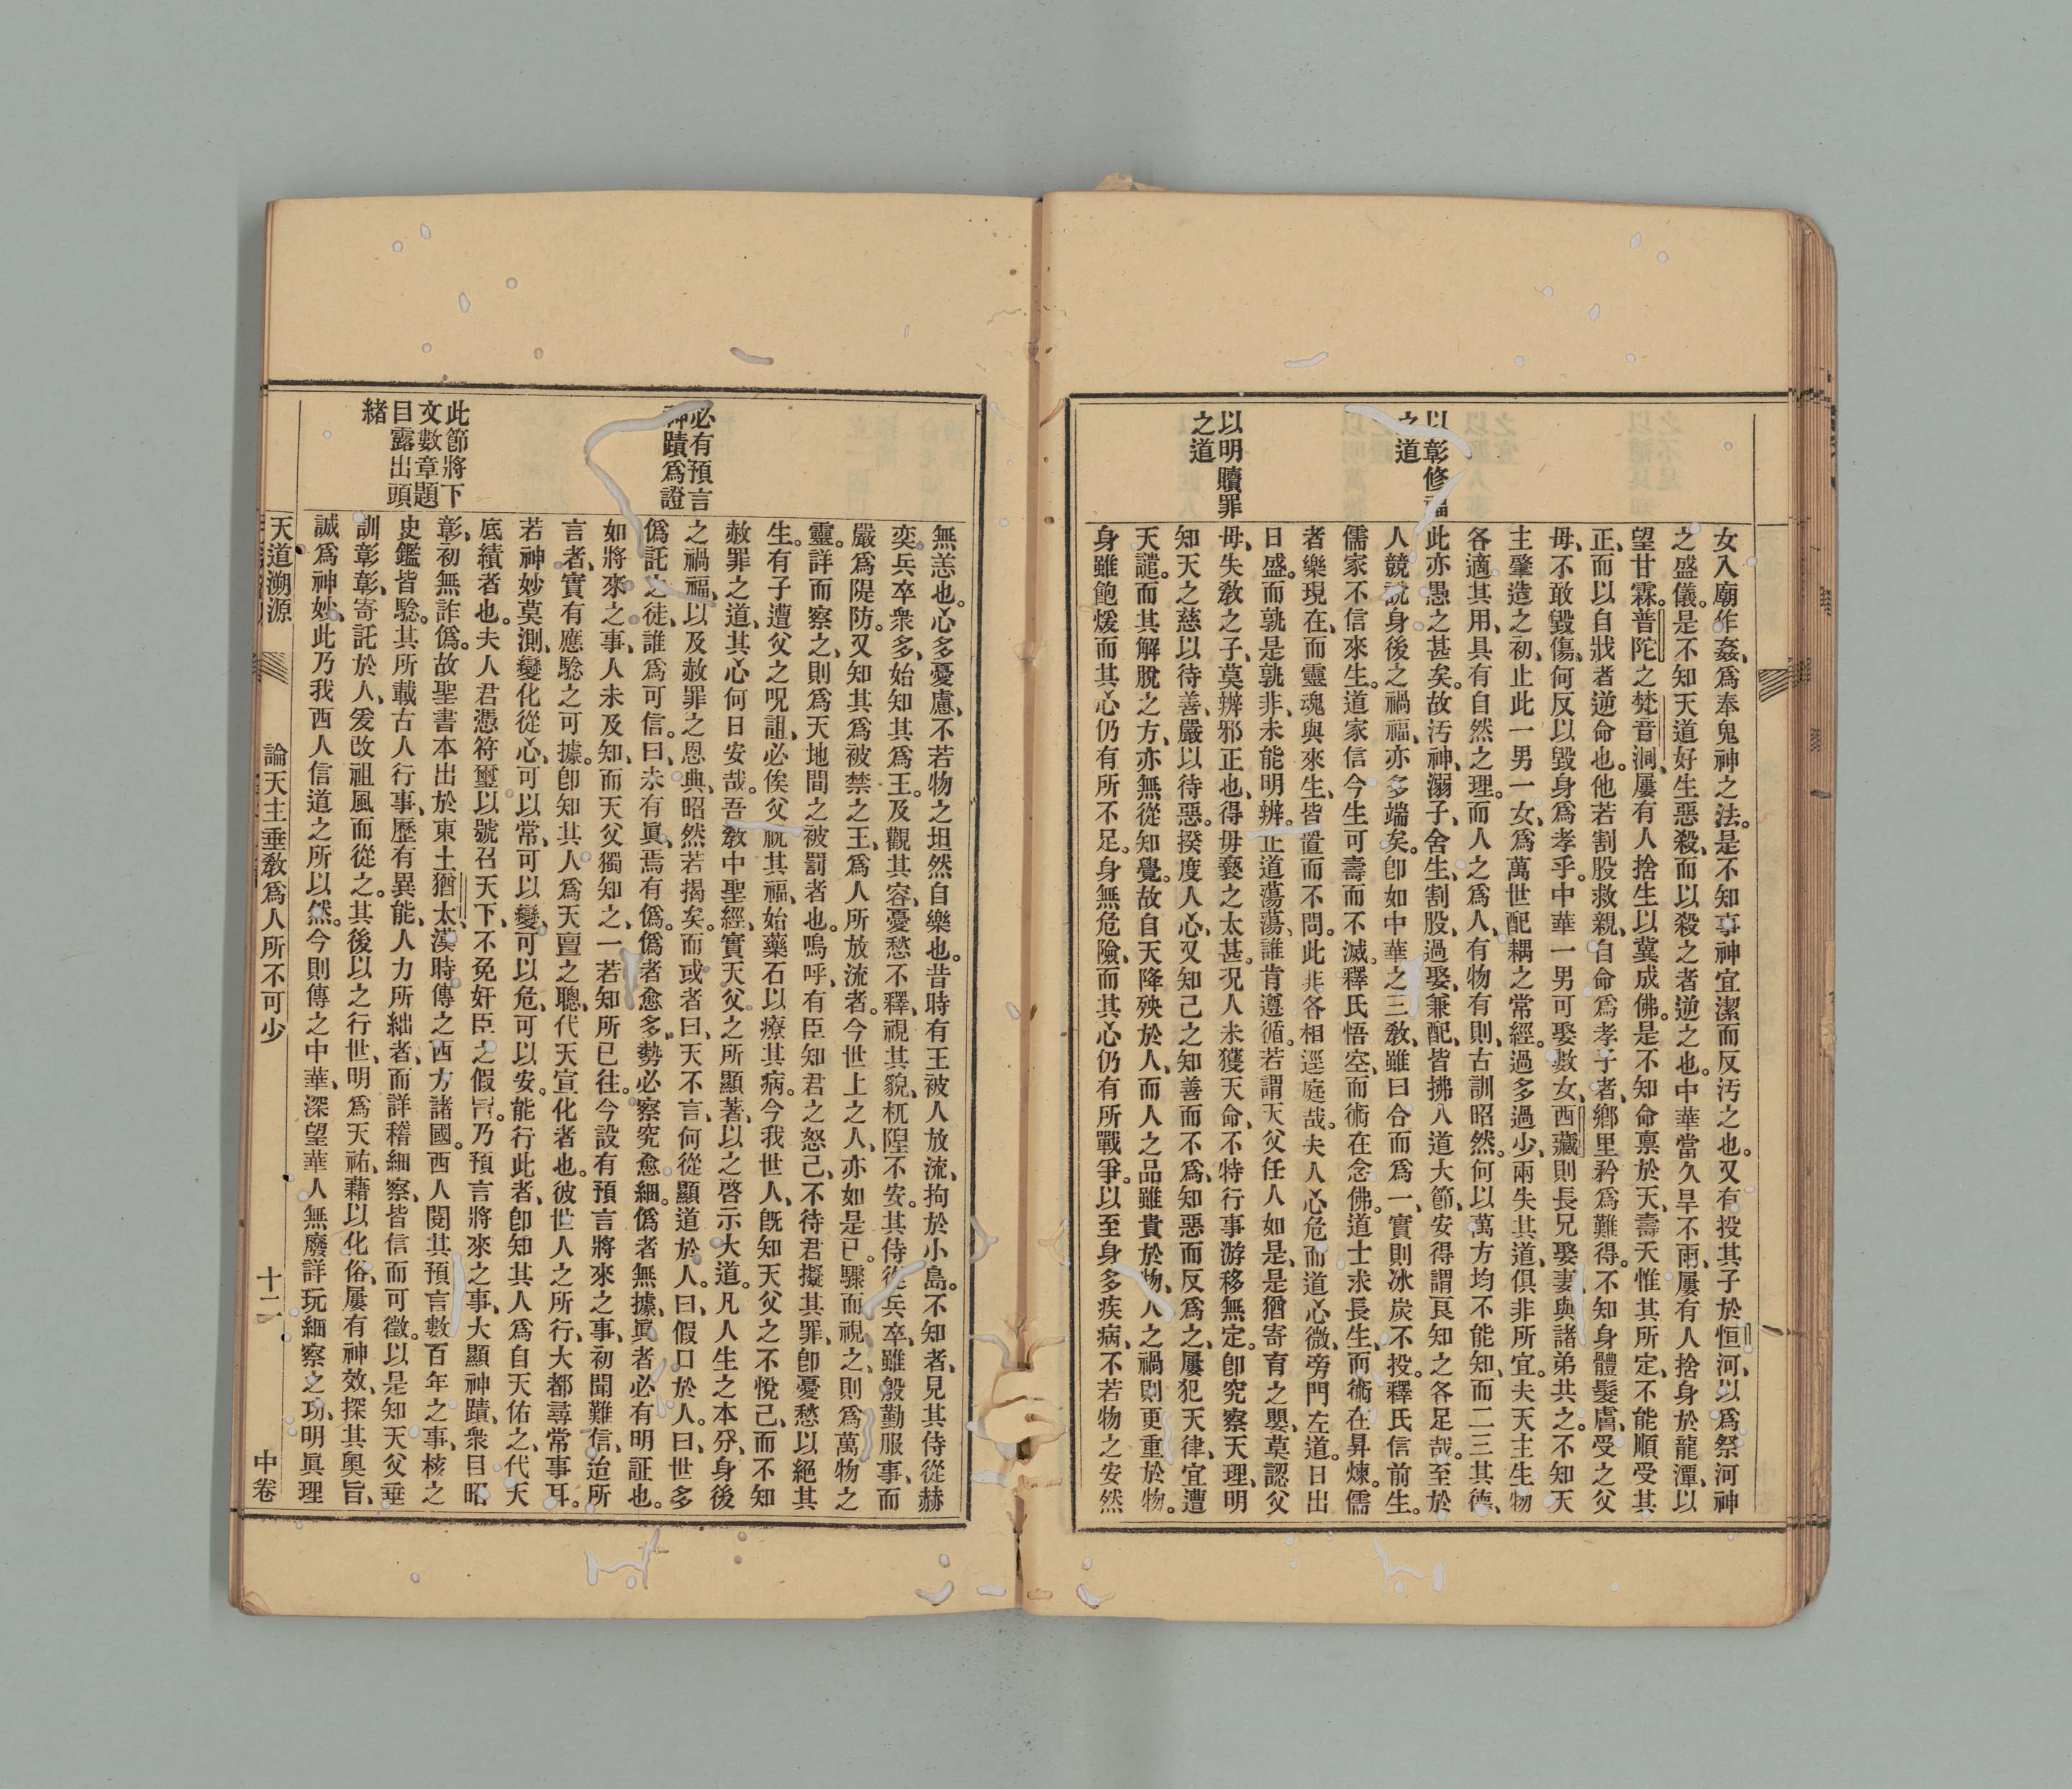 以彰修福
之道
以明贖罪
之道
女入廟作姦、爲奉鬼神之法。是不知事神宜潔而反汚之也。又有投其子於恒河、以爲祭河神
之盛儀。是不知天道好生惡殺、而以殺之者逆之也。中華當久旱不雨、屢有人捨身於龍潭、以
望甘霖。普陀之梵音洞、屢有人捨生以冀成佛。是不知命禀於天、壽夭惟其所定、不能順受其
正、而以自戕者逆命也。他若割股救親、自命爲孝子者、鄕里矜爲難得。不知身體髮膚、受之父
母、不敢毀傷、何反以毀身爲孝乎。中華一男可娶數女、西藏則長兄娶妻、與諸弟共之。不知天
主肇造之初、止此一男一女、爲萬世配耦之常經。過多過少、兩失其道、俱非所宜。夫天主生物
各適其用、具有自然之理。而人之爲人、有物有則、古訓昭然。何以萬方均不能知、而二三其德、
此亦愚之甚矣。故汚神、溺子、舍生、割股、過娶、兼配、皆拂人道大節、安得謂良知之各足哉。至於
人競說身後之禍福、亦多端矣。卽如中華之三敎、雖曰合而爲一、實則冰炭不投。釋氏信前生。
儒家不信來生。道家信今生可壽而不滅。釋氏悟空、而術在念佛。道士求長生、而術在昇煉。儒
者樂現在、而靈魂與來生、皆置而不問。此非各相逕庭哉。夫人心危而道心微、旁門左道。日出
日盛。而孰是孰非、未能明辨。正道蕩蕩、誰肯遵循。若謂天父任人如是、是猶寄育之嬰、莫認父
母、失敎之子、莫辨邪正也、得毋褻之太甚。况人未獲天命、不特行事游移無定。卽究察天理、明
知天之慈以待善、嚴以待惡。揆度人心、又知己之知善而不爲、知惡而反爲之、屢犯天律、宜遭
天譴。而其解脫之方、亦無從知覺。故自天降殃於人、而人之品雖貴於物、人之禍則更重於物。
身雖飽煖而其心仍有所不足。身無危險、而其心仍有所戰爭。以至身多疾病、不若物之安然
必有預言
神蹟爲證
此節將下
文數章題
目露出頭
緒
無恙也。心多憂慮、不若物之坦然自樂也。昔時有王被人放流、拘於小島。不知者、見其侍從赫
奕。兵卒衆多、始知其爲王。及觀其容、憂愁不釋、視其貌、杌隉不安。其侍從兵卒、雖般勤服事、而
嚴爲隄防。又知其爲被禁之王、爲人所放流者。今世上之人、亦如是已。驟而視之、則爲萬物之
靈。詳而察之、則爲天地間之被罰者也。嗚呼、有臣知君之怒己、不待君擬其罪、卽憂愁以絕其
生。有子遭父之咒詛、必俟父祝其福、始藥石以療其病。今我世人、旣知天父之不悅己、而不知
赦罪之道、其心何日安哉。吾敎中聖經、實天父之所顯著、以之啓示大道。凡人生之本分、身後
之禍福、以及赦罪之恩典、昭然若揭矣。而或者曰、天不言、何從顯道於人。曰、假口於人。曰、世多
僞託之徒、誰爲可信。曰、未有眞、焉有僞。僞者愈多、勢必察究愈細。僞者無據、眞者必有明証也。
如將來之事、人未及知、而天父獨知之、一若知所已往。今設有預言將來之事、初聞難信、迨所
言者、實有應騐之可據。卽知其人爲天亶之聰、代天宣化者也。彼世人之所行、大都尋常事耳。
若神妙莫測、變化從心、可以常、可以變、可以危、可以安。能行此者、卽知其人爲自天佑之、代天
底績者也。夫人君憑符璽以號召天下、不免奸臣之假旨。乃預言將來之事、大顯神蹟、衆目昭
彰、初無詐僞。故聖書本出於東土猶太、漢時傳之西方諸國。西人閱其預言數百年之事、核之
史鑑皆騐。其所載古人行事、歷有異能、人力所絀者、而詳稽細察、皆信而可徵。以是知天父垂
訓彰彰、寄託於人、爰改祖風而從之。其後以之行世、明爲天祐、藉以化俗、屢有神效、探其奧旨、
誠爲神妙、此乃我西人信道之所以然。今則傳之中華、深望華人無廢詳玩細察之功、明眞理
天道溯源　論天主垂敎爲人所不可少　十二　中卷